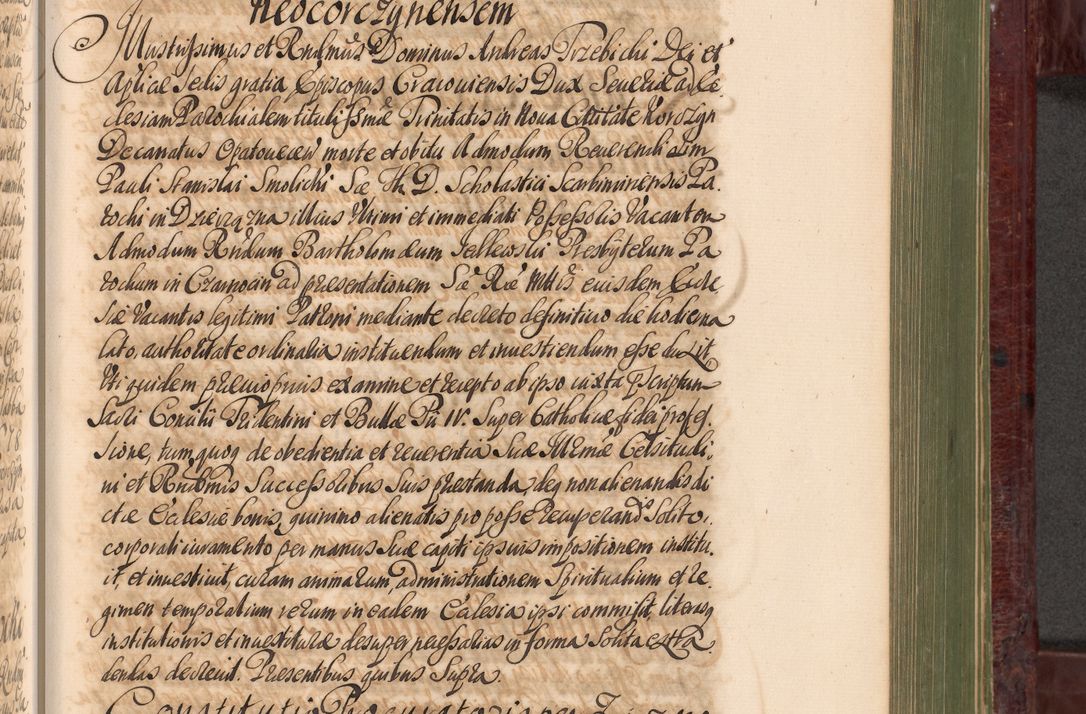 Neocorczynensem
Illustrissimus et Rndmus Dominus Andreas Trzebicki Dei et
Aplicae Sedis gratia Episcopus Cracouiensis Dux Seueriae ad Ec
clesiam Parochialem tituli SSmae Trinitatis in Noua Ciuitate Korczyn
Decanatus Opatouecen morte et obitu Admodum Reuerendi olim
Pauli Stanislai Smolicki Sae Th. D. Scholastici Scarbimiriensis Pa
rochi in Dzierązna illius Ultimi et immediati Possessoris Vacantem
Admodum Rndum Bartholomaeum Jelleoski Presbyterum Pa
rochum in Czarnocin ad praesentationem Sae Rae Mttis eiusdem Eccle
siae Vacantis legitimi Patroni mediante decreto definitiuo die hodierna
lato, authoritate ordinaria instituendum et inuestiendum esse duxit
Uti quidem praeuio prius examine et recepto ab ipso iuxta Praescriptum
Sacri Concilii Tridentini et Bullae Pii IV. Super Catholicae fidei profes
sione, tum quoq de obedientia et reuerentia Suae Illrmae Celsitudi
ni et Rndmis Successoribus Suis praestanda, deq non alienandis di
ctae Ecclesiae bonis, quinimo alienatis pro posse recuperandis Solito
corporali iuramento per manus Suae capiti ipsius impositionem institu
it, et inuestiuit, curam animarum, administrationem Spiritualium et re
gimen temporalium rerum in eadem Ecclesia ipsi commisit, literasq
institutionis et inuestiturae desuper necessarias in forma Solita extra
dendas decreuit. Praesentibus quibus Supra.
Constitutio Procuratoris per